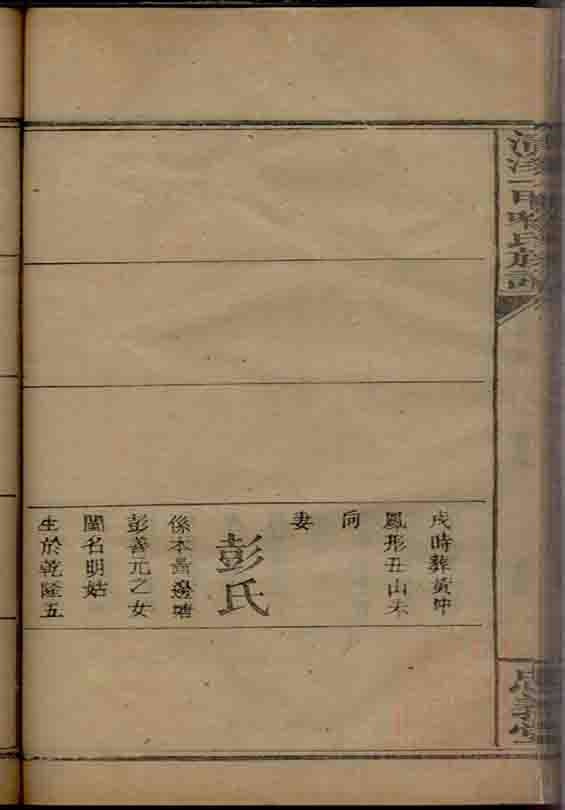 戌時葬黃沖
鳳形丑山未
向
妻
彭氏
係本邑邊塘
彭善元之女
閨名明姑
生於乾隆五